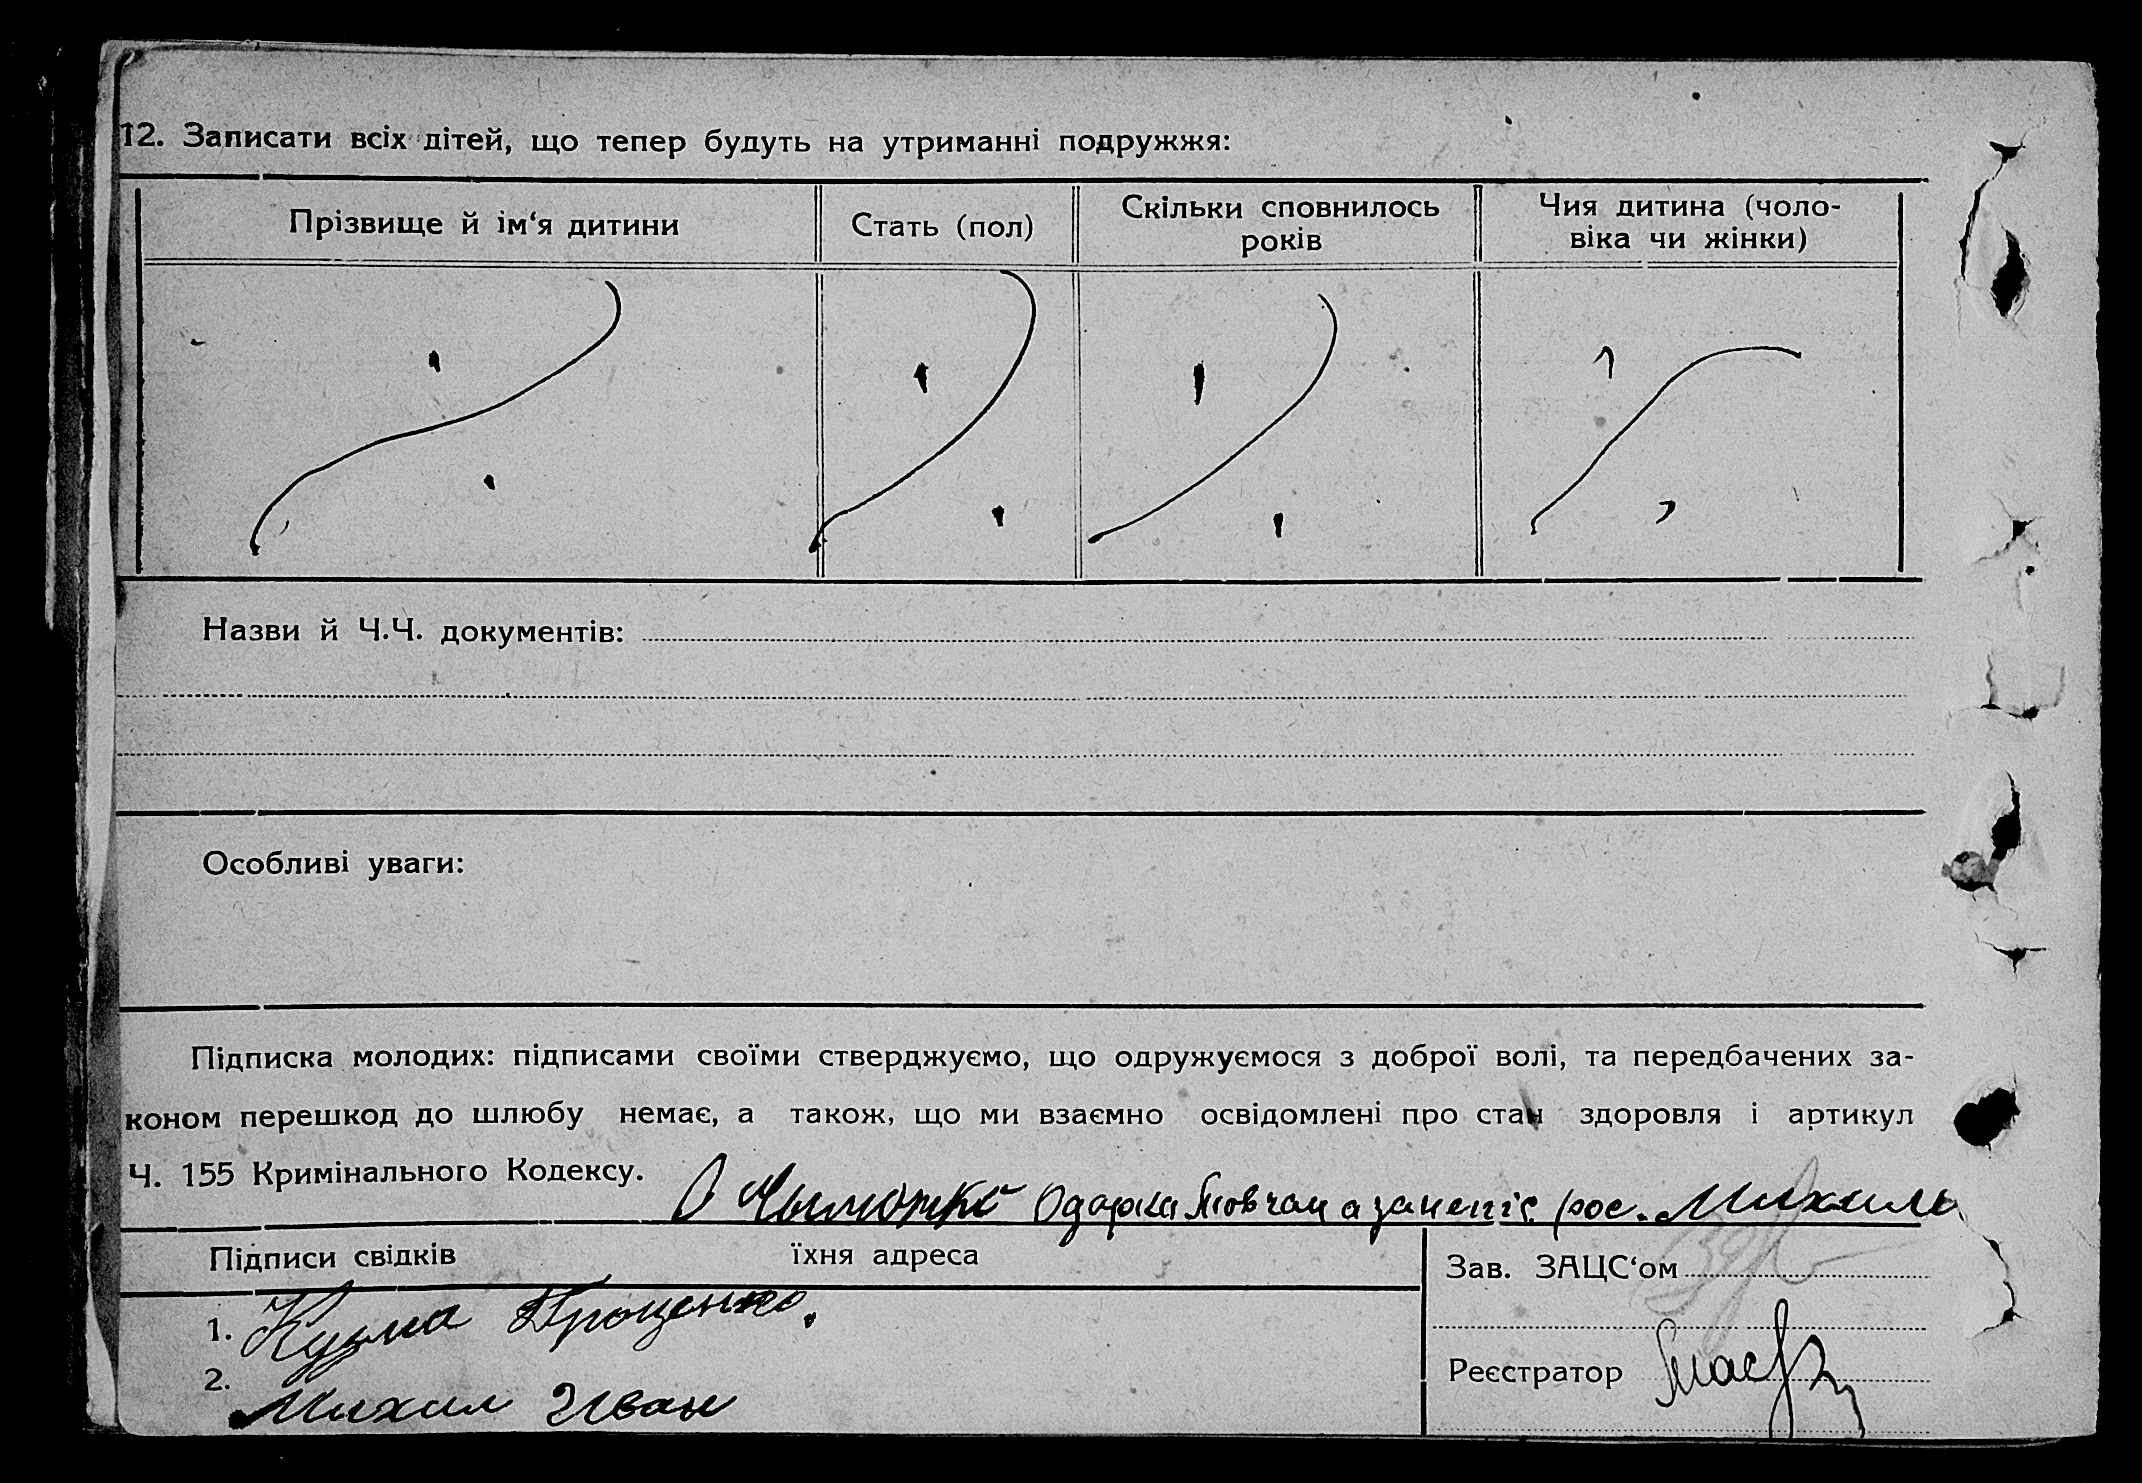 12. Записати всіх дітей, що тепер будуть на утриманні подружжя:
Прізвище й ім‘я дитини
Стать (пол)
Скільки сповнилось років
Чия дитина (чоло-
віка чи жінки)
Назви й Ч.Ч. документів:
Особливі уваги:
Підписка молодих: підписами своїми стверджуємо, що одружуємося з доброї волі, та передбачених за-
коном перешкод до шлюбу немає, а також, що ми взаємно освідомлені про стан здоровля і артикул
Ч. 155 Кримінального Кодексу.
Одарка рос. Михиль
Підписи свідків їхня адреса
Зав. ЗАЦС‘ом
1. Кузма Проценко.
2. Михил Иван
Реєстратор